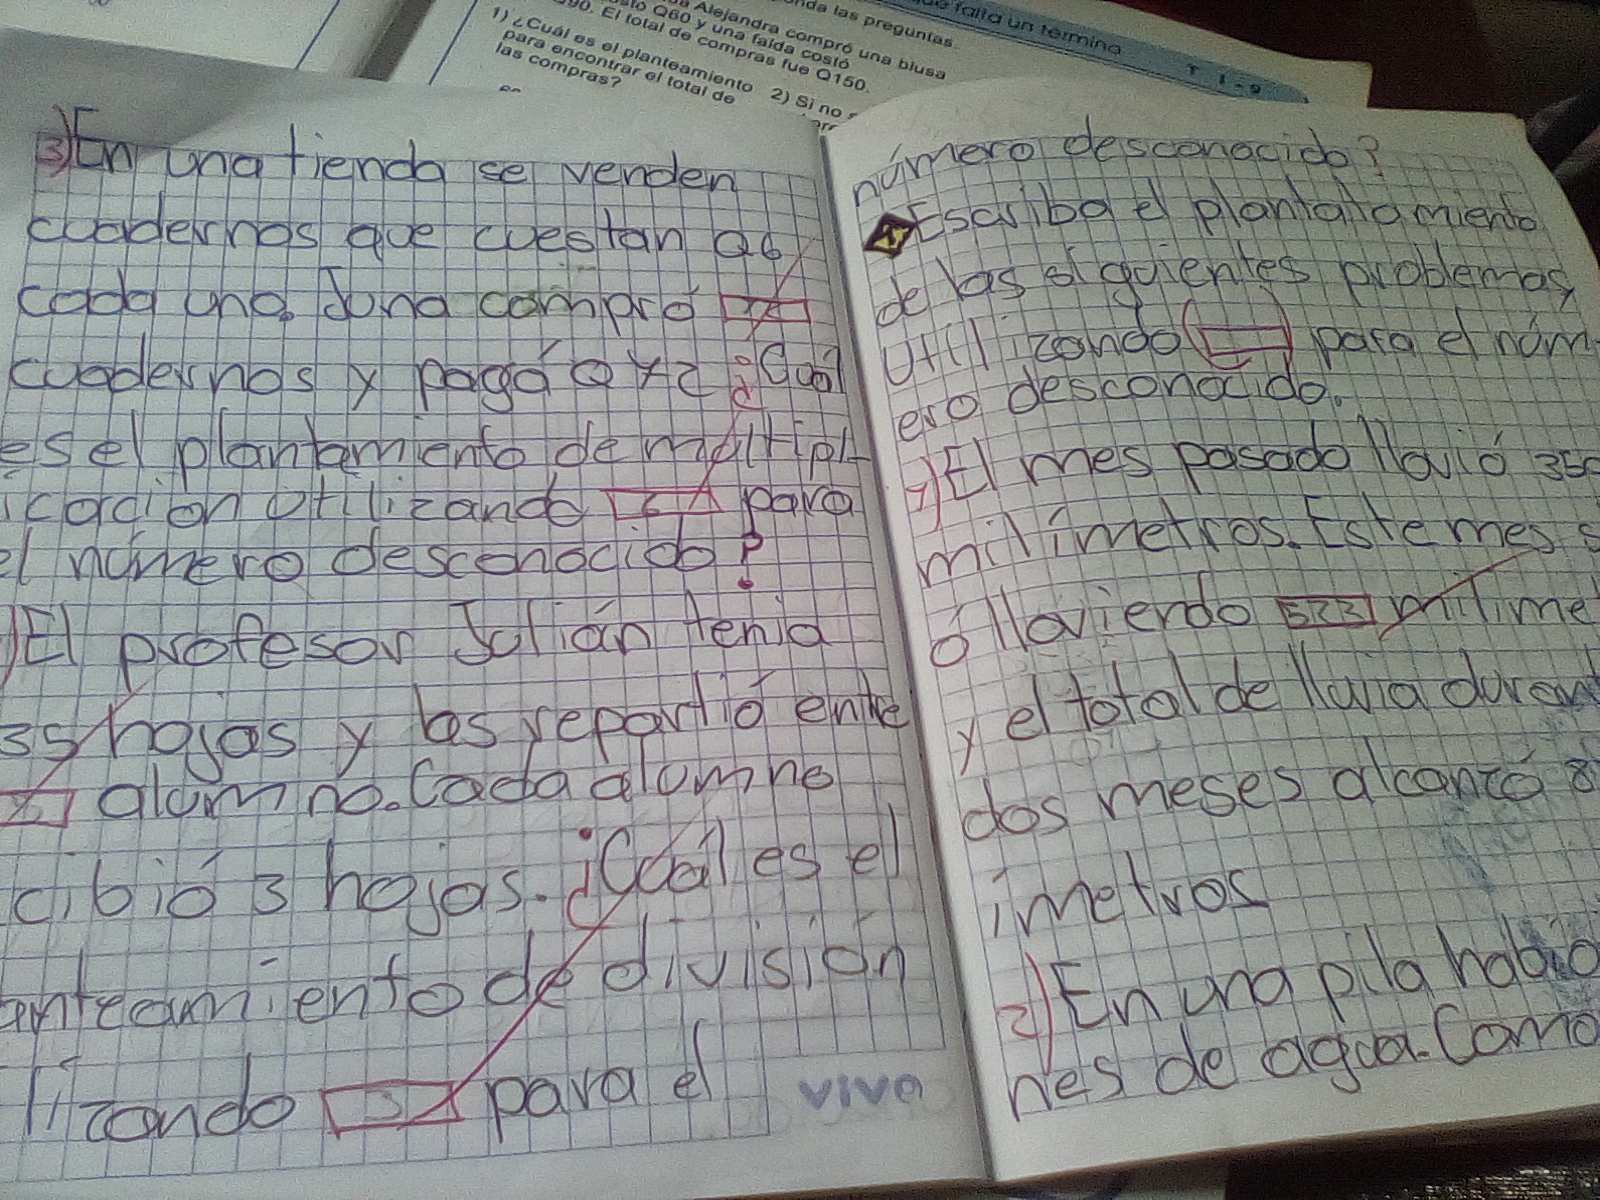 onda las preguntas.
que falta un término
Alejandra compró una blusa
Q60 y una falda costó
Q90. El total de compras fue Q150.
T 1-9
1) ¿Cuál es el planteamiento
para encontrar el total de
las compras?
2) Si no
3) En una tienda se venden
cuadernos que cuestan Q6
cada uno. Juna compró
cuadernos y pagó Q42 ¿Cuál
es el plantamiento de multipl-
icación utilizando para
el número desconocido?
)El profesor Julián tenía
35 hojas y las repartió entre
alumno. Cada alumno
cibió 3 hojas. ¿Cuál es el
anteamiento de división
lizando para el
viva
número desconocido?
Escriba el plantatamiento
de las siguientes problemas,
Utilizando para el núm-
ero desconocido.
1) El mes pasado llovió 350
milímetros. Este mes s
ó lloviendo 523 milime
y el total de lluvia durant
dos meses alcanzó 8
ímetros
2) En una pila había
nes de agua. Como